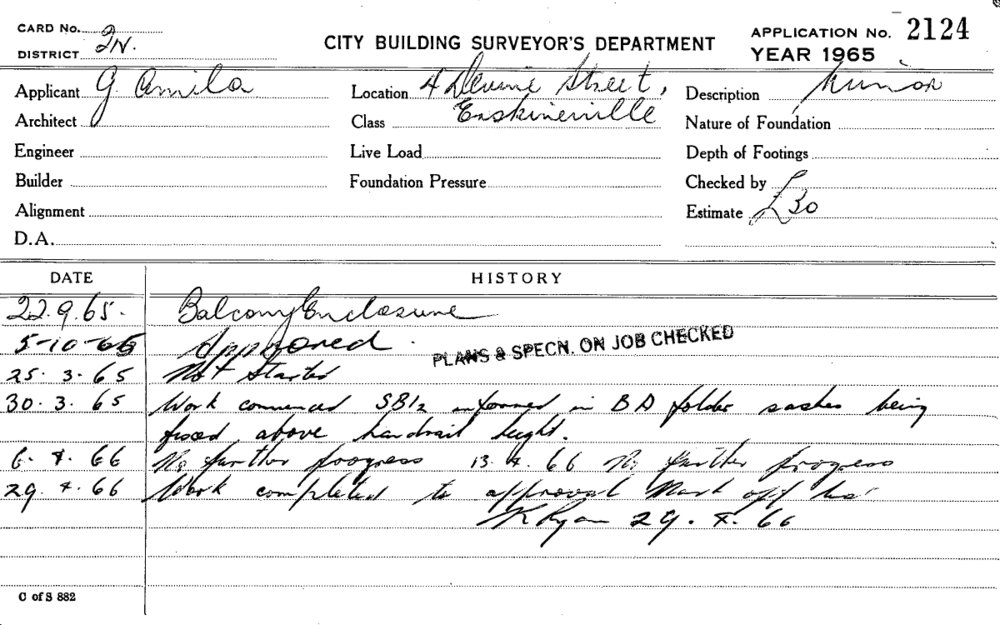 CARD No.
2N.
DISTRICT
CITY BUILDING SURVEYOR'S DEPARTMENT
APPLICATION No. 2124
YEAR 1965
Applicant G. Amila
Location 4 Devine Street,
Description Minor
Architect
Class Erskineville
Nature of Foundation
Engineer
Live Load
Depth of Footings
Builder
Foundation Pressure
Checked by
Alignment
Estimate £30
D.A.
DATE HISTORY
22.9.65. Balcony Enclosure
5-10-65 Approved.
PLANS & SPECN. ON JOB CHECKED
25.3.65 Not Started
30.3.65 Work commenced informed in BA folder sashes being
fixed above handrail height.
6.4.66 No further progress 13.4.66 No further progress
29.4.66 Work completed to approval Mark off
K Ryan 29.4.66
C of S 882